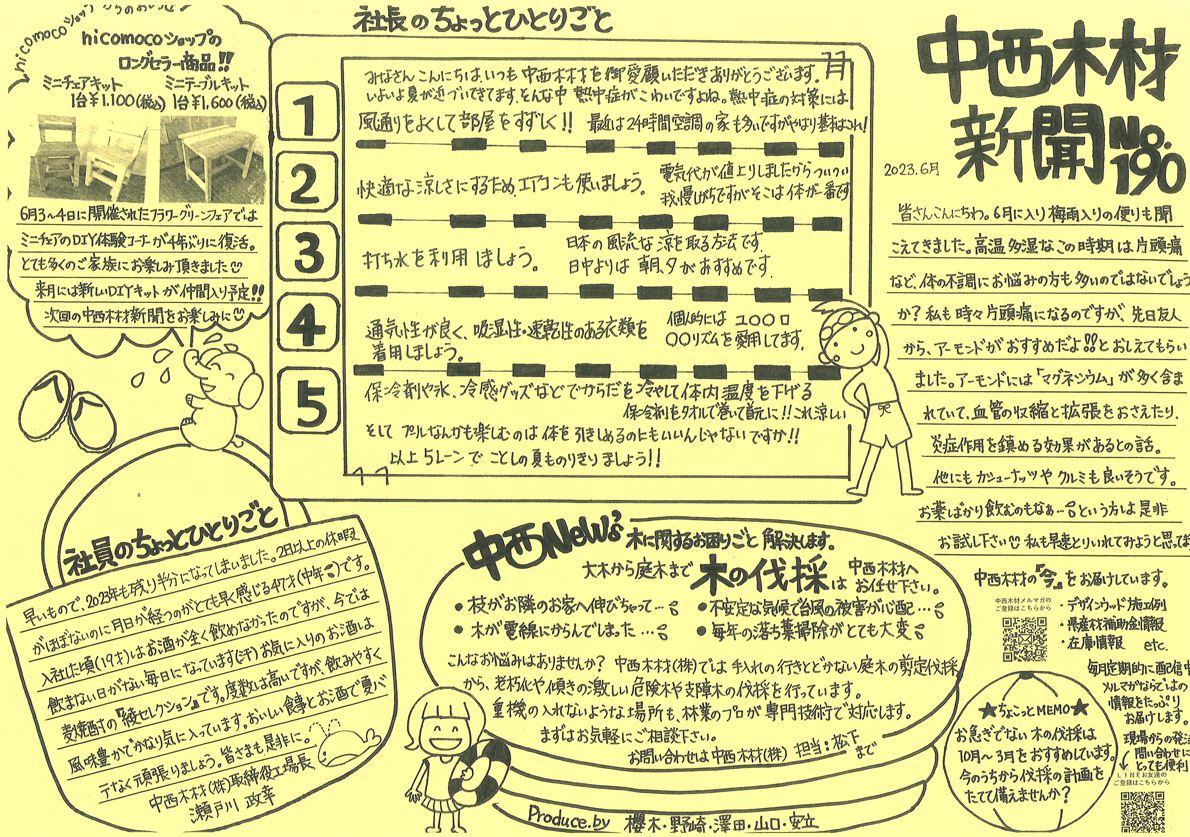 中西木材
新聞 No.190
2023.6月
皆さんこんにちわ。6月に入り梅雨入りの便りも聞
こえてきました。高温多湿なこの時期は片頭痛
など、体の不調にお悩みの方も多いのではないでしょう
か?私も時々片頭痛になるのですが、先日友人
から、アーモンドがおすすめだよ!!とおしえてもらい
ました。アーモンドには「マグネシウム」が多く含ま
れていて、血管の収縮と拡張をおさえたり、
炎症作用を鎮める効果があるとの話。
他にもカシューナッツやクルミも良いそうです。
お薬ばかり飲むのもなぁ…という方よ是非
お試し下さい 私も早速とりいれてみようと思ってます
社長のちょっとひとりごと
みなさんこんにちは、いつも中西木材を御愛顧いただきありがとうございます。
いよいよ夏が近づいてきてます。そんな中熱中症がこわいですよね。熱中症の対策には
1 風通りをよくして部屋をすずしく!! 最近は24時間空調の家も多いですがやはり基本はこれ!
2 快適な涼しさにするため、エアコンも使いましょう。
電気代が値上りしましたからついつい
我慢しがちですがそこは体が一番です
3 打ち水を利用しましょう。
日本の風流な涼を取る方法です。
日中よりは朝、夕がおすすめです。
4 通気性が良く、吸湿性・速乾性のある衣類を
着用しましょう。
個人的にはユ〇〇ロ
〇〇リズムを愛用してます。
5 保冷剤や氷、冷感グッズなどでからだを冷やして体内温度を下げる
保冷剤をタオルで巻いて首元に!!これ涼しい
そしてプールなんかも楽しむのは体を引きしめるのにもいいんじゃないですか!!
以上5レーンでことしの夏ものりきりましょう!!
nicomocoショップからのお知らせ
nicomocoショップの
ロングセラー商品!!
ミニチェアキット ミニテーブルキット
1台¥1,100(税込) 1台¥1,600(税込)
6月3~4日に開催されたフラワーグリーンフェアでは
ミニチェアのDIY体験コーナーが4年ぶりに復活。
とても多くのご家族にお楽しみ頂きました
来月には新しいDIYキットが仲間入り予定!!
次回の中西木材新聞をお楽しみに
社員のちょっとひとりごと
早いもので、2023年も残り半分になってしまいました。2日以上の休暇
がほぼないのに月日が経つのがとても早く感じる47才(中年)です。
入社した頃(19才)はお酒が全く飲めなかったのですが、今では
飲まない日がない毎日になっています(汗)お気に入りのお酒は
麦焼酎の『綾セレクション』です。度数は高いですが、飲みやすく
風味豊かでかなり気に入っています。おいしい食事とお酒で夏バ
テなく頑張りましょう。皆さまも是非に。
中西木材(株)取締役工場長
瀬戸川 政幸
中西News 木に関するお困りごと解決します。
大木から庭木まで 木の伐採は 中西木材へ
お任せ下さい。
・枝がお隣のお家へ伸びちゃって…
・不安定な気候で台風の被害が心配…
・木が電線にからんでしまった…
・毎年の落ち葉掃除がとても大変
こんなお悩みはありませんか?中西木材(株)では手入れの行きとどかない庭木の剪定伐採
から、老朽化や傾きの激しい危険木や支障木の伐採を行っています。
重機の入れないような場所も、林業のプロが専門技術で対応します。
まずはお気軽にご相談下さい。
お問い合わせは中西木材(株) 担当:松下まで
Produce.by 櫻木・野崎・澤田・山口・安立
中西木材の「今」をお届けしています。
中西木材メルマガの
ご登録はこちらから
・デザインウッド施工例
・県産材補助金情報
・在庫情報 etc.
毎月定期的に配信中
メルマガならではの
情報をたっぷり
お届けします。
現場からの発注
問い合わせに
とっても便利
LINEお友達の
ご登録はこちらから
★ちょこっとMEMO★
お急ぎでない木の伐採は
10月~3月をおすすめしています。
今のうちから伐採の計画を
たてて備えませんか?